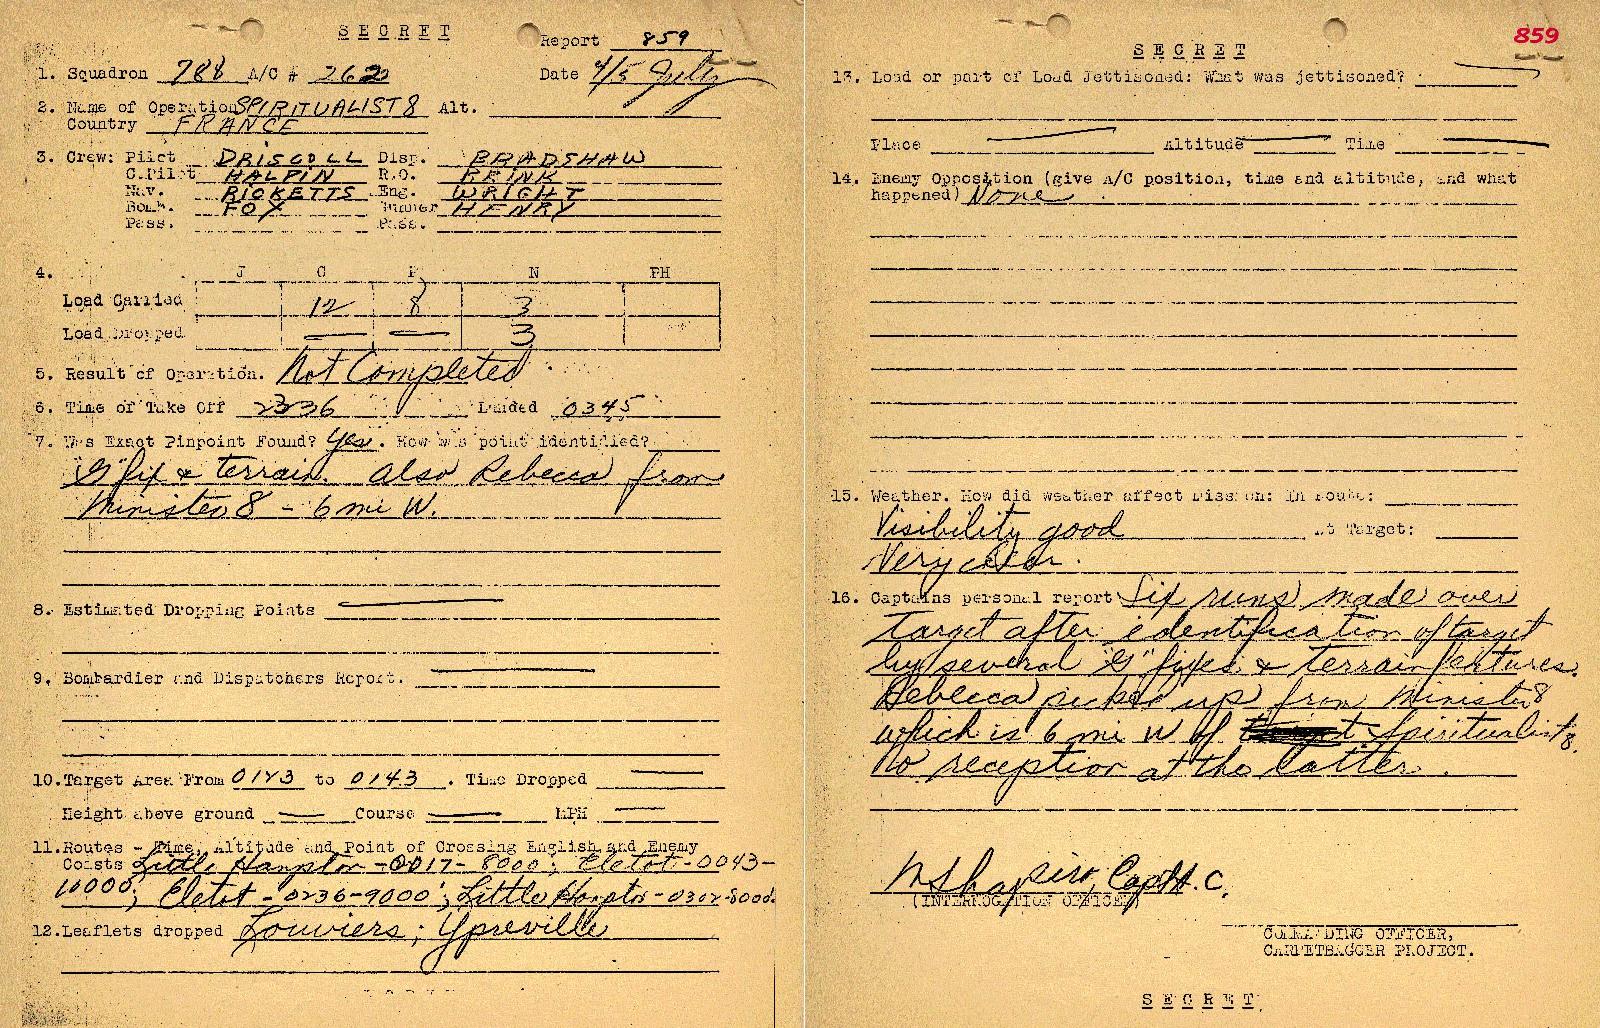 SECRET
Report 859
1. Squadron 788 A/C # 262 Date 4/5 July
2. Name of Operation SPIRITUALIST 8 Alt.
Country FRANCE
3. Crew: Pilot DRISCOLL Disp. BRADSHAW
C.Pilot HALPIN R.O. BRINK
Nav. RICKETTS Eng. WRIGHT
Bomb. FOX Gunner HENRY
Pass. Pass.
4. J C P N PH
Load Carried 12 8 3
Load Dropped — — 3
5. Result of Operation. Not Completed
6. Time of Take Off 2336 Landed 0345
7. Was Exact Pinpoint Found? Yes. How was point identified?
"G" fix & terrain. Also Rebecca from
Minister 8 - 6 mi W.
8. Estimated Dropping Points —
9. Bombardier and Dispatchers Report. —
10. Target Area From 0123 to 0143. Time Dropped —
Height above ground — Course — MPH —
11. Routes - Time, Altitude and Point of Crossing English and Enemy
Coasts Little Hampton - 0017 - 8000; Eletot - 0043 -
10000; Eletot - 0236 - 9000'; Little Hampton - 0302 - 8000'.
12. Leaflets dropped Louviers; Ypreville
859
SECRET
13. Load or part of Load Jettisoned: What was jettisoned? —
Place — Altitude — Time —
14. Enemy Opposition (give A/C position, time and altitude, and what
happened) None
15. Weather. How did weather affect Mission: En Route:
Visibility good At Target:
Very clear.
16. Captains personal report Six runs made over
target after identification of target
by several "G" fixes & terrain features.
Rebecca picked up from Minister 8
which is 6 mi W of Spiritualist 8.
No reception at the latter.
M Shapiro, Capt. A.C.
(INTERROGATION OFFICER)
COMMANDING OFFICER,
CARPETBAGGER PROJECT.
SECRET